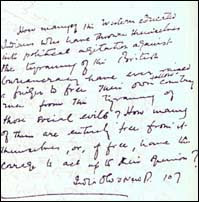 How many of the Western educated
Indians who have thrown themselves
into political agitation against
the tyranny of the British
bureaucracy have ever raised
a finger to free their own country
men from the tyranny of
those social evils? How many
of them are entirely free from it
themselves, or, if free, have the
courage to act up to their opinions?
P. 107